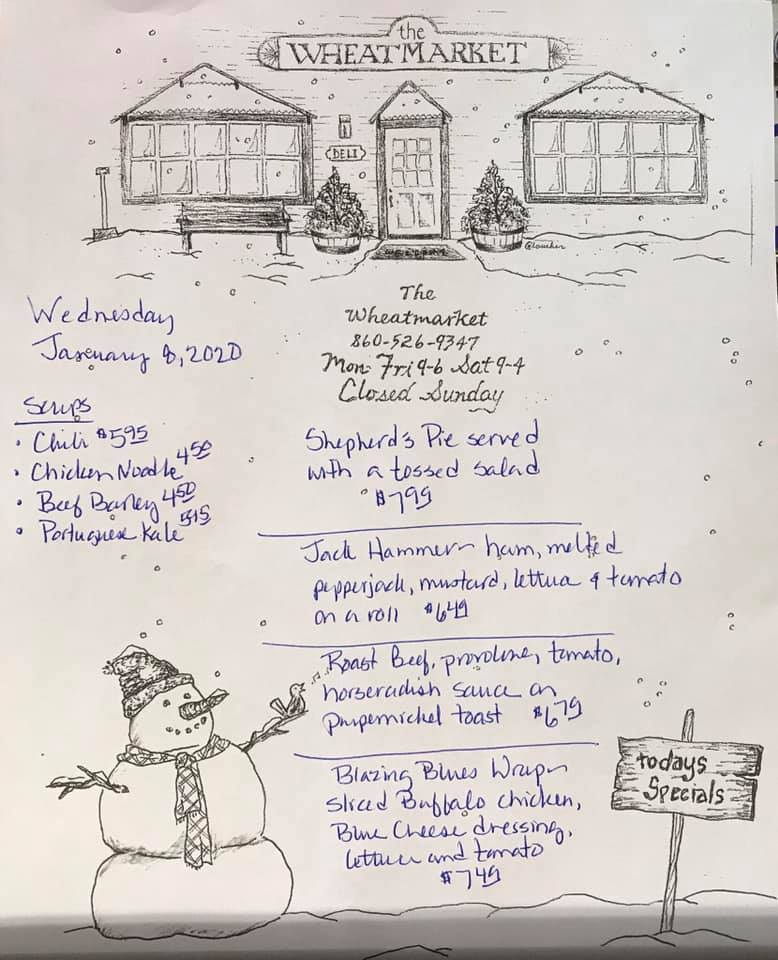 the
WHEATMARKET
DELI
WELCOME
The
Wheatmarket
860-526-9347
Mon-Fri 9-6 Sat 9-4
Closed Sunday
Wednesday
January 8, 2020
Soups
• Chili $5.95
• Chicken Noodle 4.50
• Beef Barley 4.50
• Portuguese Kale 5.15
Shepherd's Pie served
with a tossed salad
$7.99
Jack Hammer - ham, melted
pepperjack, mustard, lettuce & tomato
on a roll $6.49
Roast Beef, provolone, tomato,
horseradish sauce on
pumpernickel toast $6.79
Blazing Blues Wrap -
sliced Buffalo chicken,
Blue Cheese dressing,
lettuce and tomato
$7.49
todays
Specials